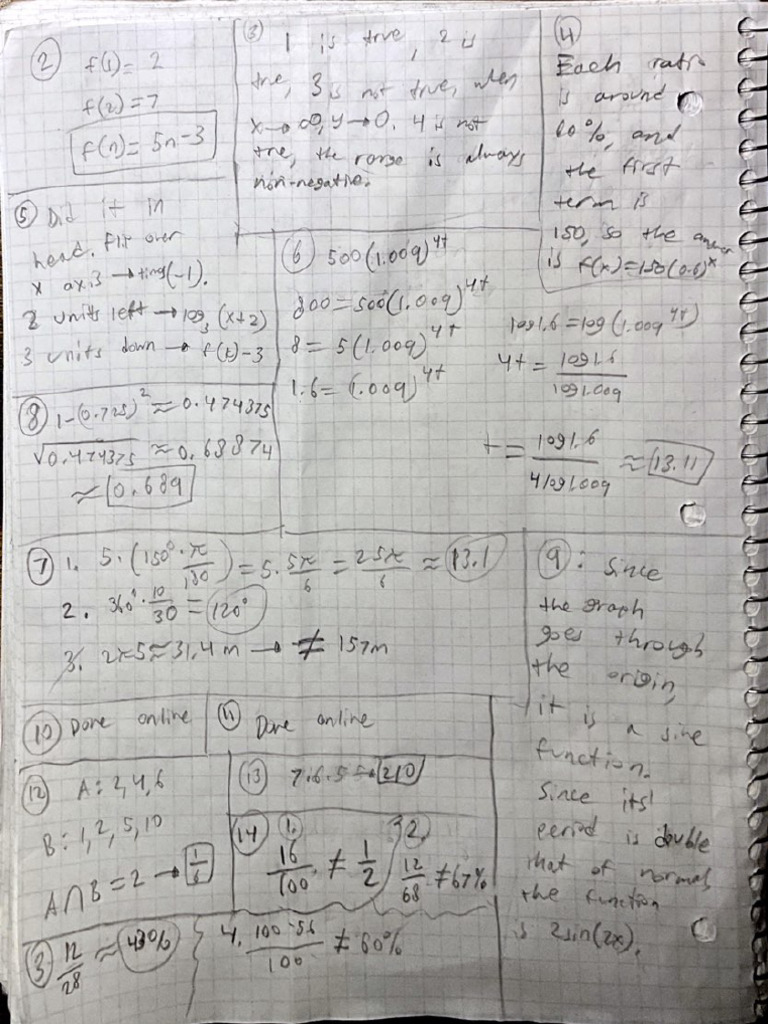 ② f(1) = 2
f(2) = 7
f(n) = 5n-3
③ 1 is true, 2 is
true, 3 is not true, when
x → ∞, y → 0. 4 is not
true, the range is always
non-negative.
④
Each ratio
is around
60%, and
the first
term is
150, so the answer
is f(x)=150(0.6)^x
⑤ Did it in
head. Flit over
x axis → times(-1).
2 units left → log₃(x+2)
3 units down → f(t)-3
⑥ 500(1.009)^4t
800 = 500(1.009)^4t
8 = 5(1.009)^4t
1.6 = (1.009)^4t
log1.6 = log(1.009^4t)
4t = log1.6 / log1.009
t = log1.6 / 4log1.009 ≈ 13.11
⑧ 1-(0.725)² ≈ 0.474375
√0.474375 ≈ 0.68874
≈ 0.689
⑦ 1. 5·(150°·π/180) = 5·5π/6 = 25π/6 ≈ 13.1
2. 360°·10/30 = 120°
3. 2π5 ≈ 31.4 m → ≠ 157m
⑨: Since
the graph
goes through
the origin,
it is a sine
function.
Since its'
period is double
that of normal,
the function
is 2sin(2x).
⑩ Done online
⑪ Done online
⑫ A: 2,4,6
B: 1,2,5,10
A∩B = 2 → 1/6
⑬ 7·6·5 = 210
⑭ 1. 16/100 ≠ 1/2
2. 12/68 ≠ 67%
③ 12/28 ≈ 43%
4. 100-56/100 ≠ 60%